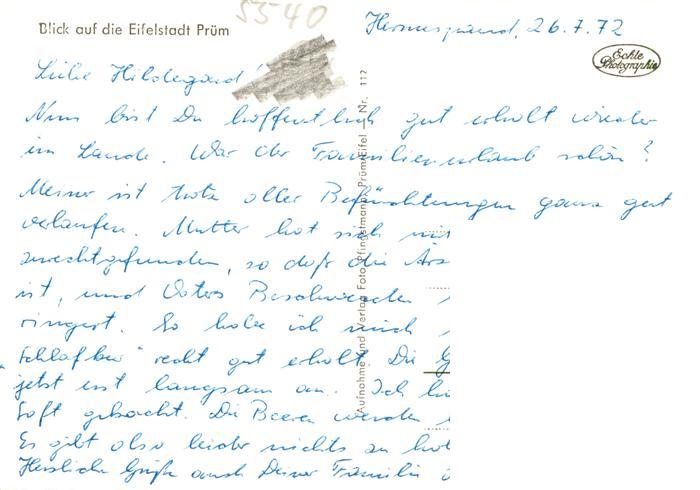 5540
Blick auf die Eifelstadt Prüm
26.7.72
Echte Photographie
Liebe Hildegard!
Nun bist Du hoffentlich gut erholt wieder
im Lande. War der Familienurlaub schön?
Meiner ist trotz aller Befürchtungen ganz gut
verlaufen. Mutter hat sich
zurechtgefunden, so daß die
ist, und Vaters Beschwerden
ringert. So habe ich mich
recht gut erholt. Die
jetzt erst langsam an. Ich
Saft gebracht. Die Beeren werden
Es gibt also leider nichts zu
Herzliche Grüße auch Deiner Familie
Aufnahme und Verlag Foto Pfingstmann, Prüm/Eifel Nr. 112